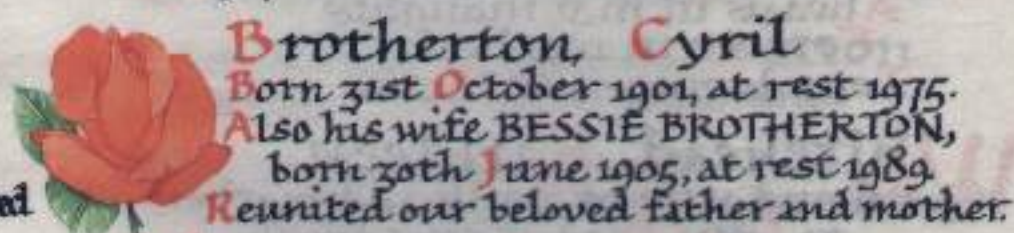 Brotherton, Cyril
Born 31st October 1901, at rest 1975.
Also his wife BESSIE BROTHERTON,
born 30th June 1905, at rest 1989.
Reunited our beloved father and mother.